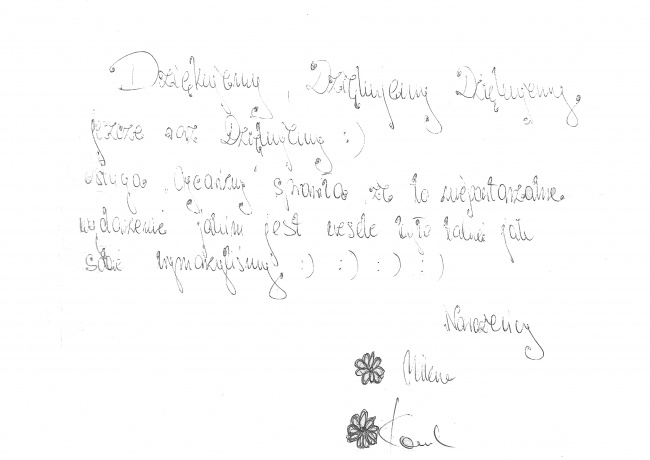 Dziękujemy, Dziękujemy Dziękujemy,
jeszcze raz Dziękujemy :)
sprawiła, że to niepowtarzalne
wydarzenie jakim jest wesele było takie jak
sobie wymarzyliśmy :) :) :) :)
Narzeczeni